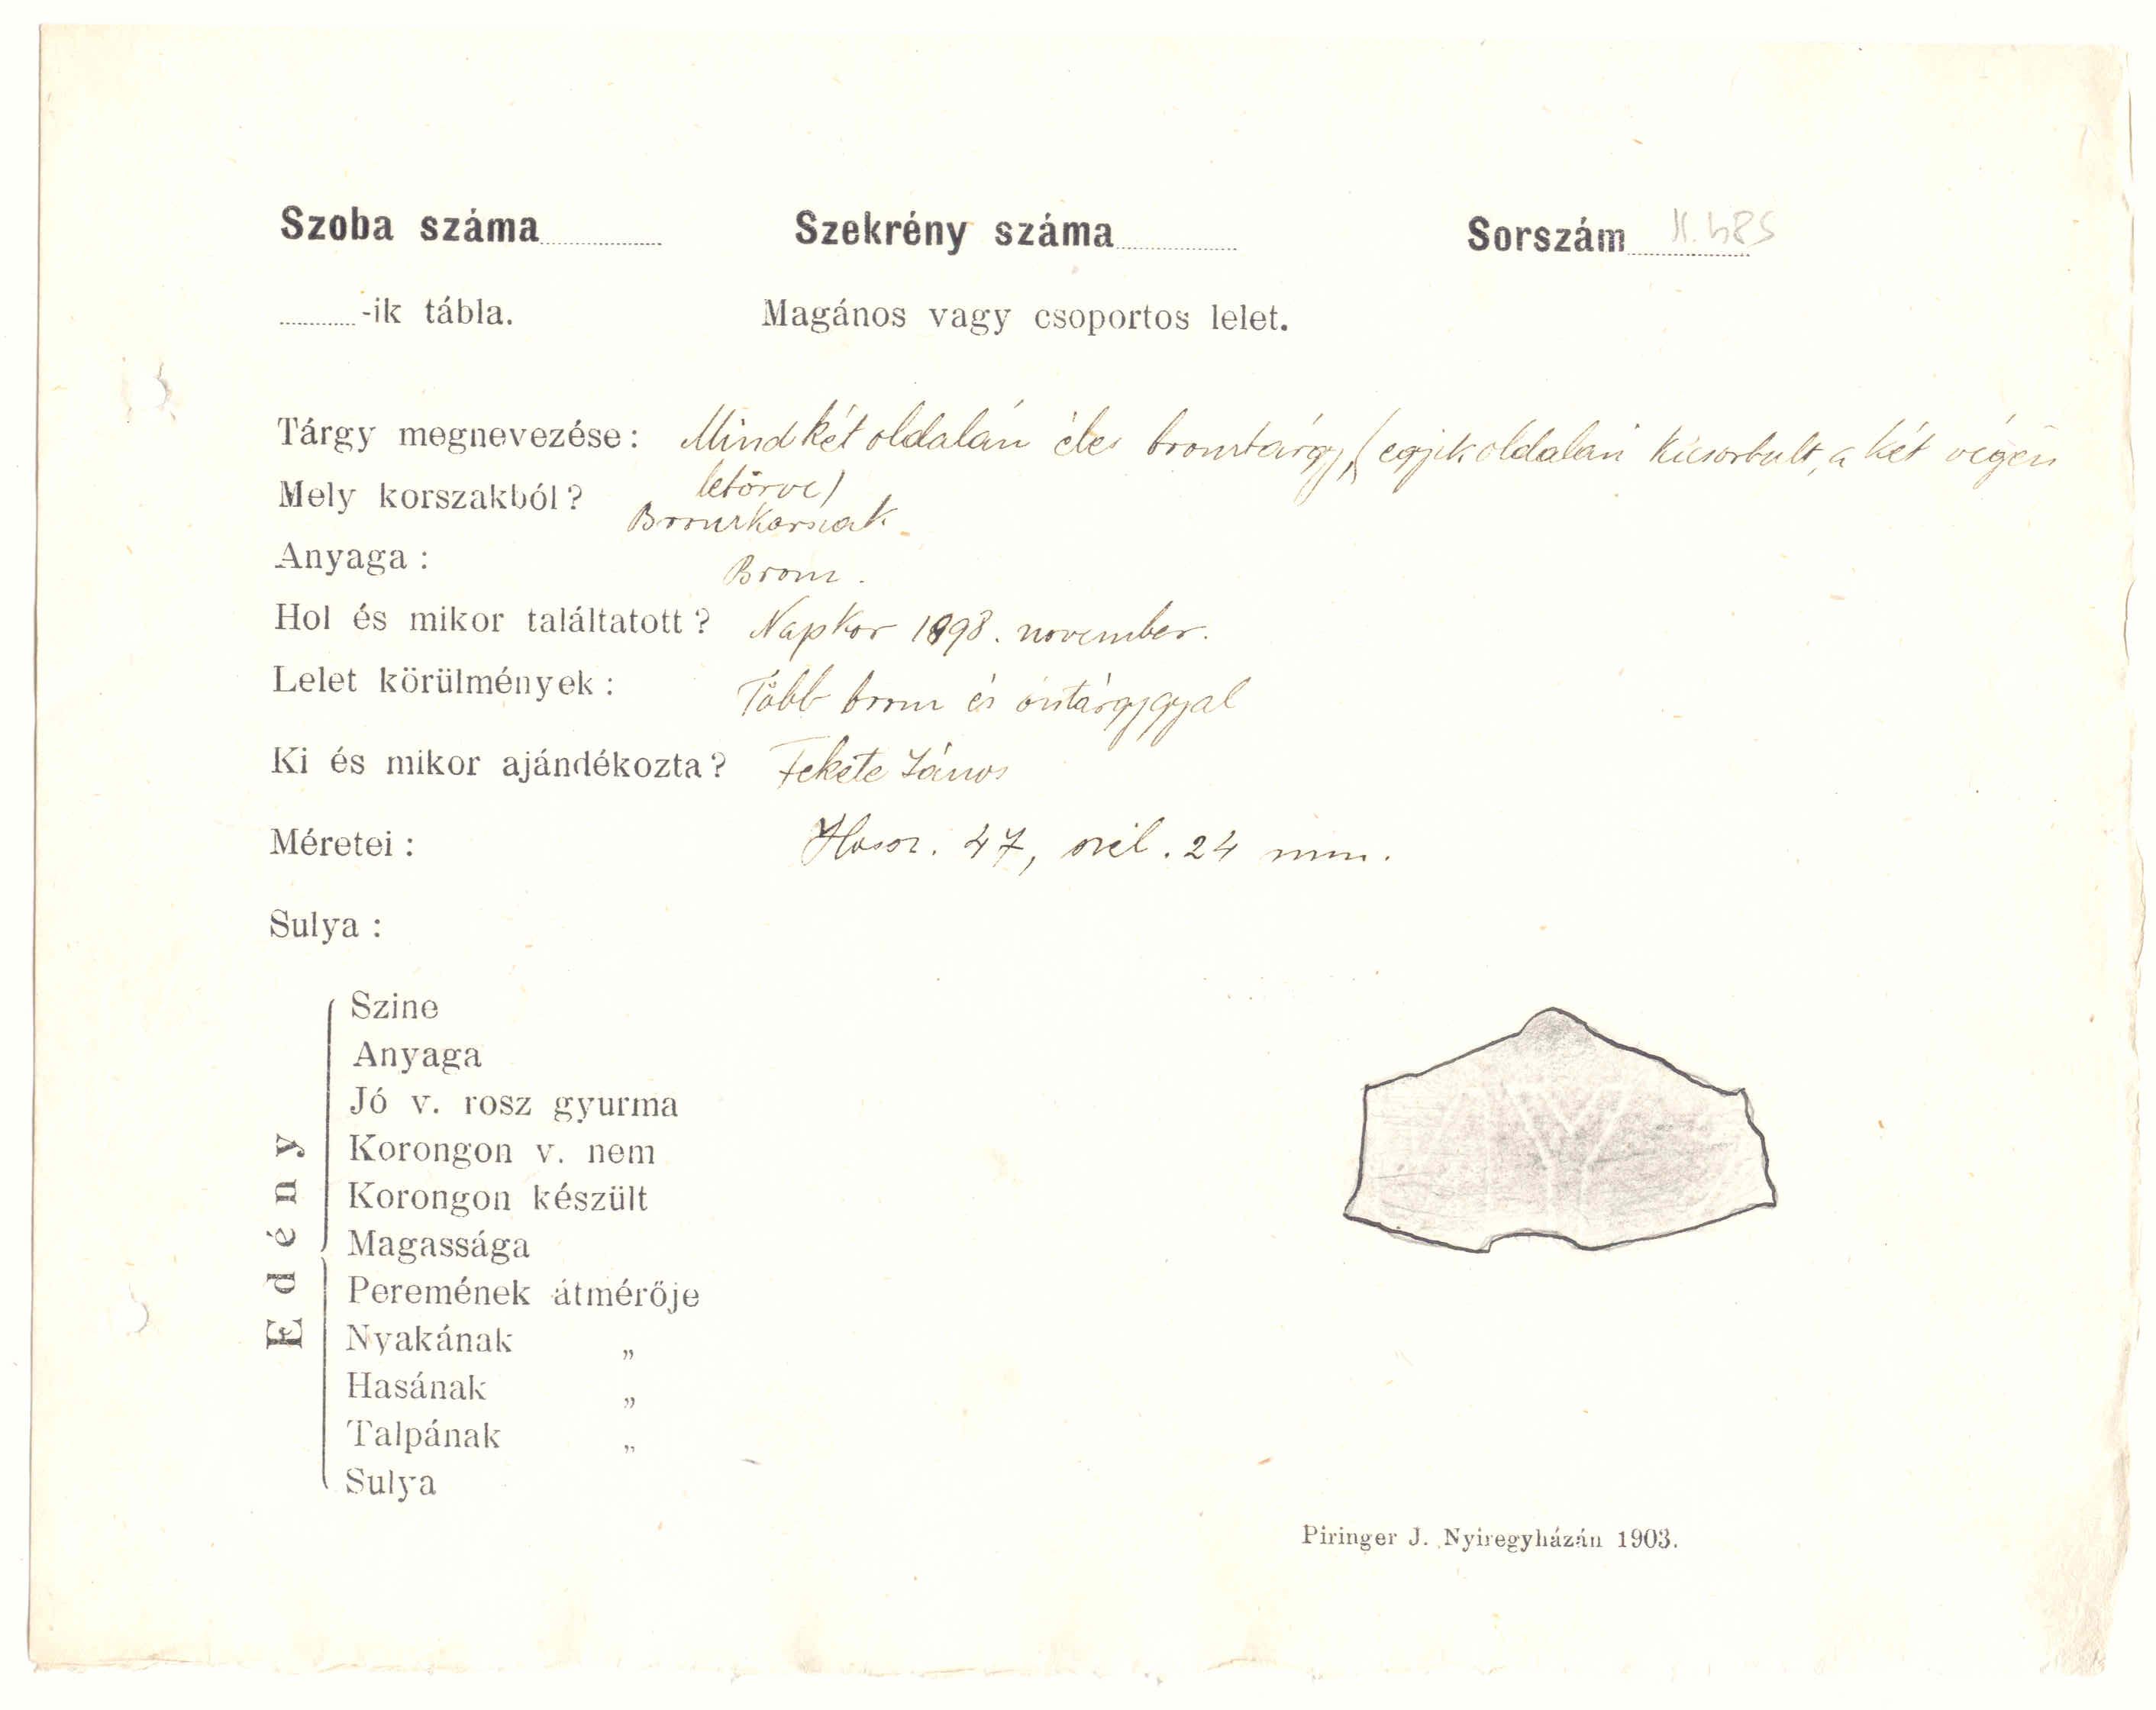 Szoba száma Szekrény száma Sorszám II. 485
-ik tábla. Magános vagy csoportos lelet.
Tárgy megnevezése: Mindkét oldalán éles bronztárgy, (egyik oldalán kicsorbult, a két végén
letörve)
Mely korszakból? Bronzkorszak.
Anyaga: Bronz.
Hol és mikor találtatott? Napkor 1898. november.
Lelet körülmények: Több bronz és óntárgygyal
Ki és mikor ajándékozta? Fekete János
Méretei: Hossz. 47, szél. 24 mm.
Sulya:
Edény
Szine
Anyaga
Jó v. rosz gyurma
Korongon v. nem
Korongon készült
Magassága
Peremének átmérője
Nyakának „
Hasának „
Talpának „
Sulya
Piringer J. Nyiregyházán 1903.